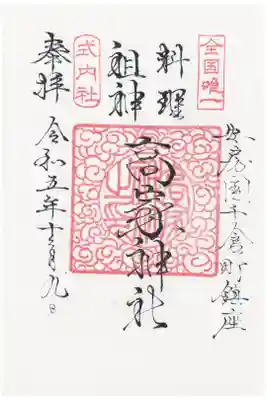 全国唯一
安房国千倉町鎮座
料理
祖神
高家神社
式内社
奉拝
令和五年十一月九日